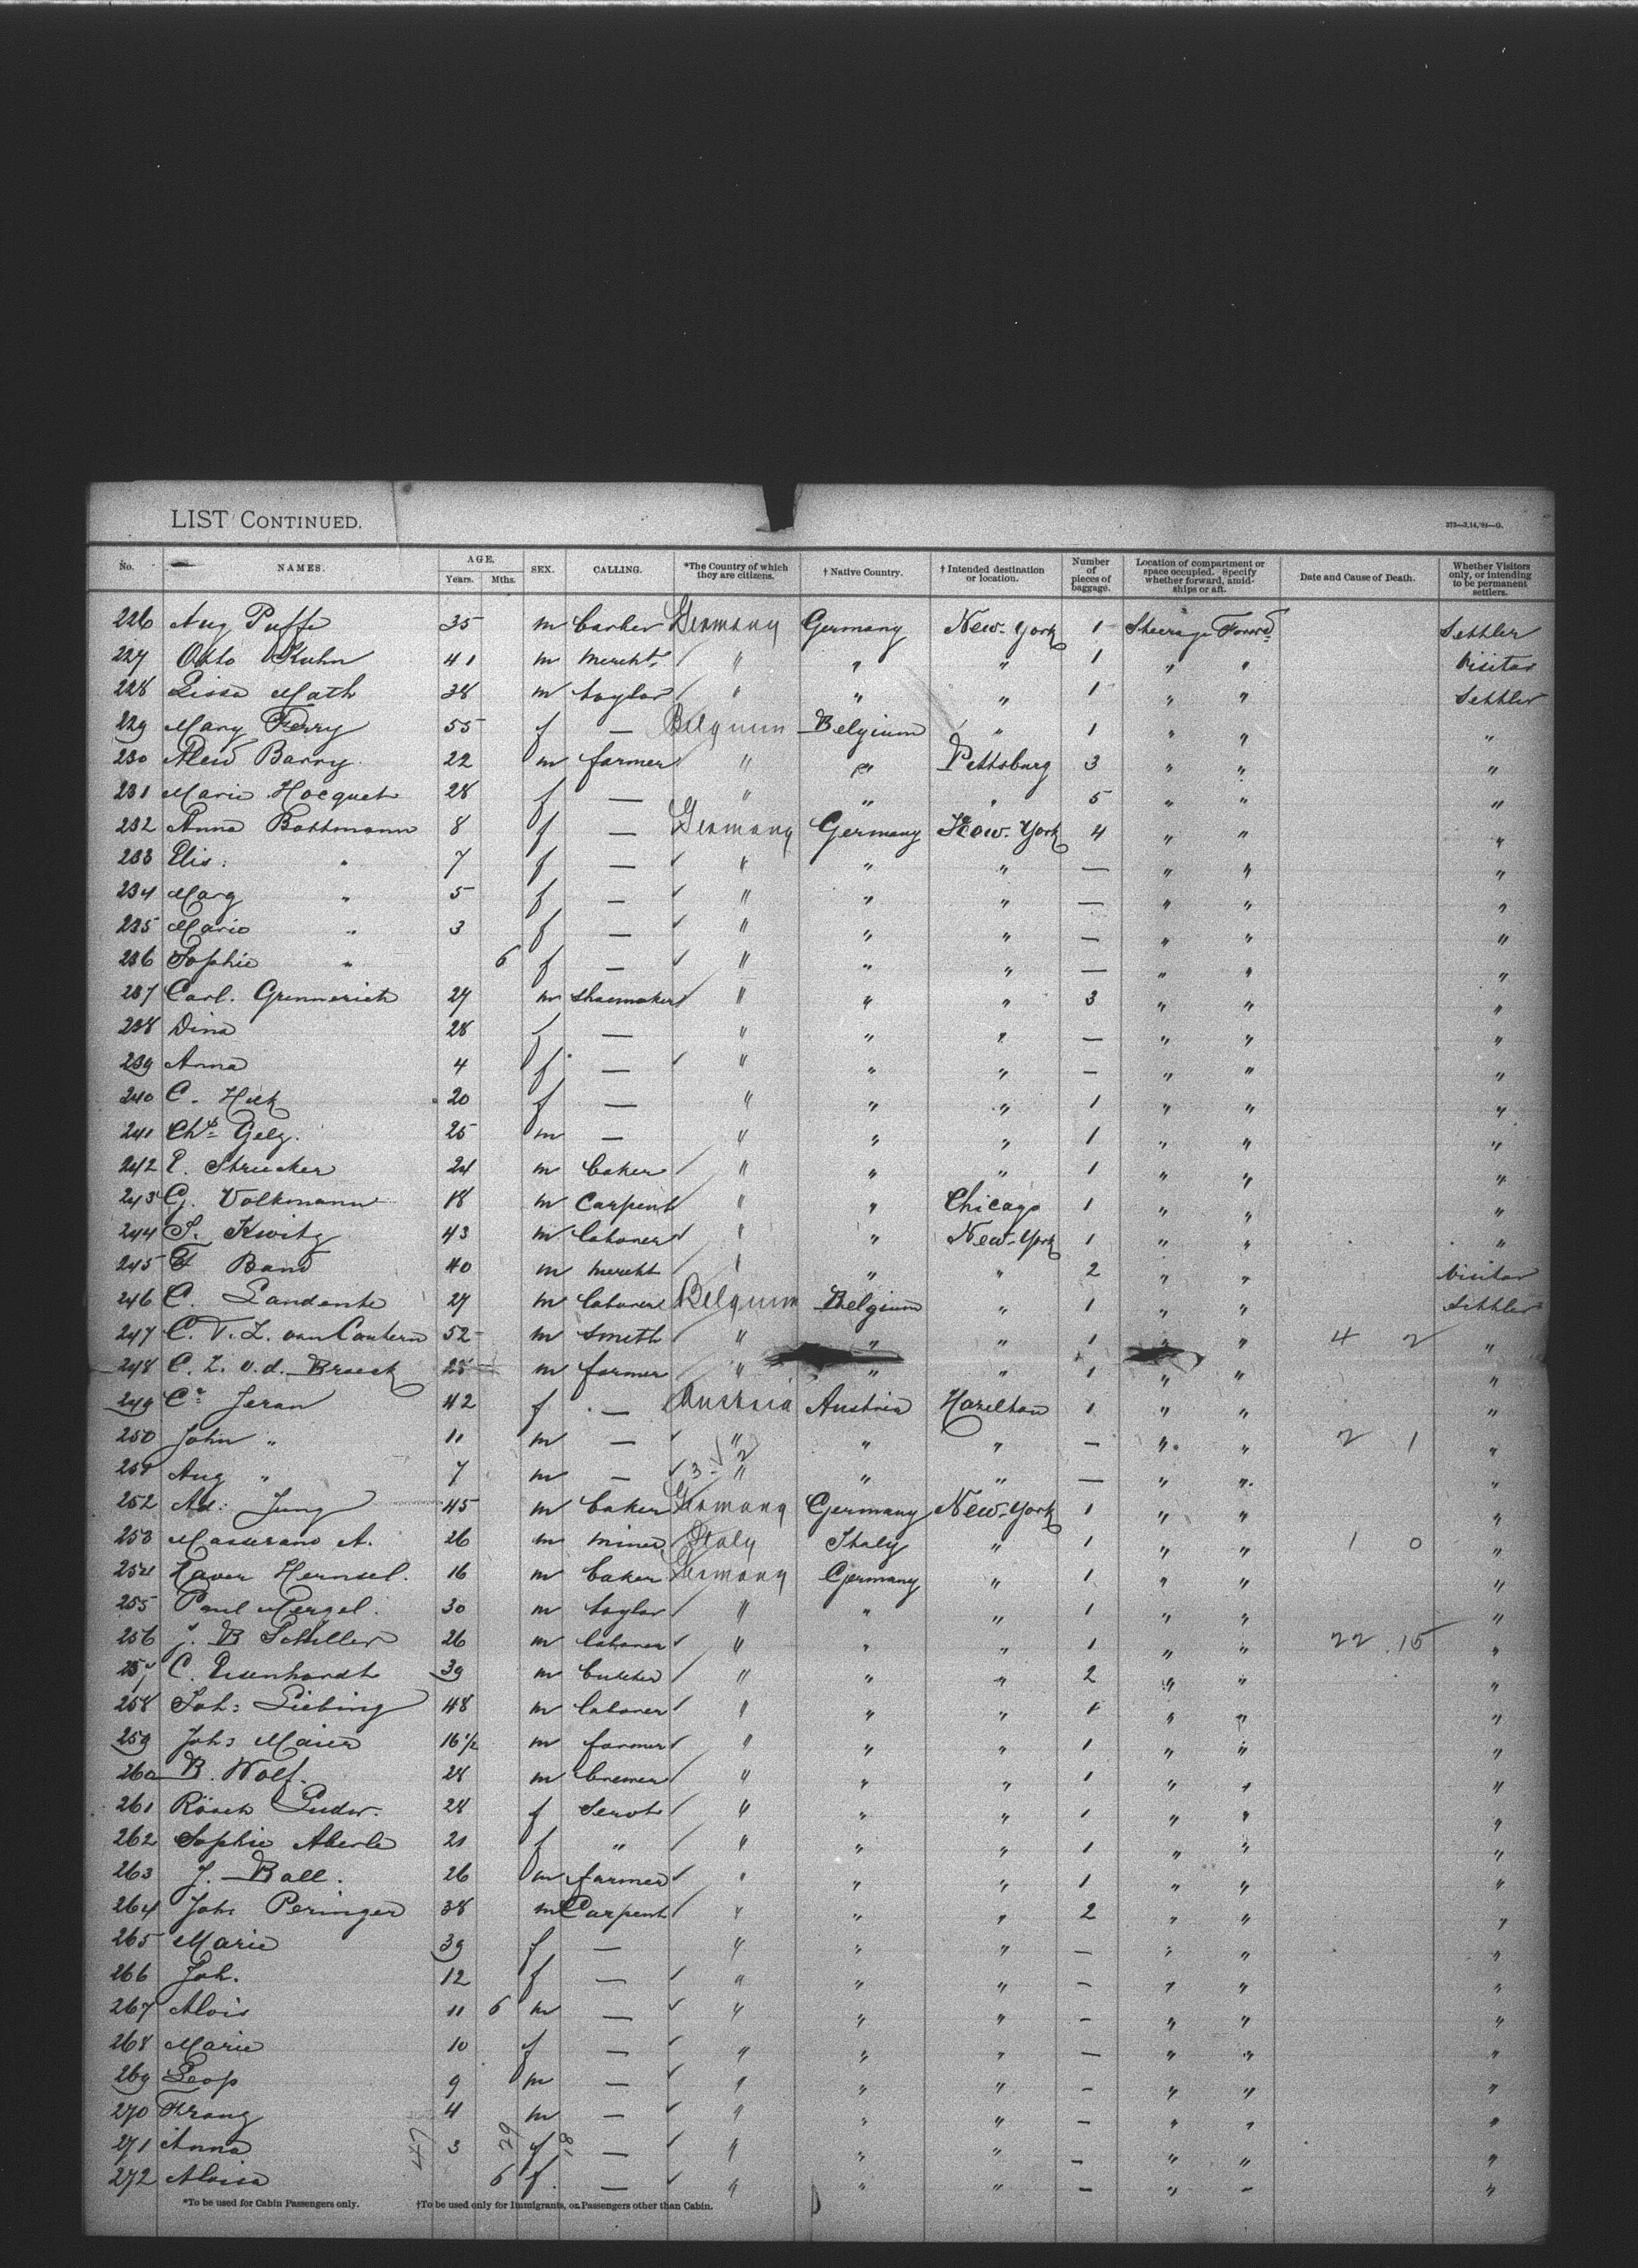 LIST CONTINUED.
373—3,14,'91—G.
No. NAMES. AGE. Years. Mths. SEX. CALLING. *The Country of which they are citizens. † Native Country. † Intended destination or location. Number of pieces of baggage. Location of compartment or space occupied. Specify whether forward, amidships or aft. Date and Cause of Death. Whether Visitors only, or intending to be permanent settlers.
226 Aug Puffe 35 m Germany Germany New-York 1 Steerage Forwd Settler
227 Otto Kuhn 41 m Mercht " " " 1 " " Visitor
228 Lissa Math 38 m taylor " " " 1 " " Settler
229 Mary Ferry 55 f — Belgium Belgium " 1 " " "
230 Barry 22 m farmer " " Pettsburg 3 " " "
231 Marie Hocquet 28 f — " " " 5 " " "
232 Anna Bottmann 8 f — Germany Germany New-York 4 " " "
233 Elis: " 7 f — " " " — " " "
234 Marg " 5 f — " " " — " " "
235 Marie " 3 f — " " " — " " "
236 Sophie " 6 f — " " " — " " "
237 Carl. Grennerich 27 m shoemaker " " " 3 " " "
238 Dina 28 f — " " " — " " "
239 Anna 4 f — " " " — " " "
240 C. Hek 20 f — " " " 1 " " "
241 Chs Gelz. 25 m — " " " 1 " " "
242 E. Strecker 24 m baker " " " 1 " " "
243 G. Volkmann 18 m Carpent " " Chicago 1 " " "
244 S. Kwitz 43 m laborer " " New-York 1 " " "
245 F Band 40 m mercht " " " 2 " " Visitor
246 C. Landente 27 m laborer Belgium Belgium " 1 " " Settler
247 C. V. L. van Cautern 52 m smith " " " 1 " " 4 2 "
248 C. L. v. d. Broeck 25 m farmer " " " 1 " " "
249 Cr Jeran 42 f — Austria Austria Hazelton 1 " " "
250 John " 11 m — " " " — " " 2 1 "
251 Aug " 7 m — 3 2 " " " — " " "
252 Ad: Jung 45 m baker Germany Germany New-York 1 " " "
253 Masserano A. 26 m miner Italy Italy " 1 " " 1 0 "
254 Xaver Hernsel. 16 m baker Germany Germany " 1 " " "
255 Paul Mergel. 30 m taylor " " " 1 " " "
256 J. B Schiller 26 m laborer " " " 1 " " 22 15 "
257 C. Eisenhardt 39 m butcher " " " 2 " " "
258 Joh: Liebing 48 m laborer " " " 1 " " "
259 Joh: Maier 16½ m farmer " " " 1 " " "
260 B. Wolf. 28 m brewer " " " 1 " " "
261 Rösch Ludw. 28 f Servt " " " 1 " " "
262 Sophie Aberle 21 f " " " " 1 " " "
263 J. Ball. 26 m farmer " " " 1 " " "
264 Joh: Peringer 38 m Carpent " " " 2 " " "
265 Marie 39 f — " " " — " " "
266 Joh. 12 f — " " " — " " "
267 Alois 11 6 m — " " " — " " "
268 Marie 10 f — " " " — " " "
269 Leop 9 m — " " " — " " "
270 Franz 4 m — " " " — " " "
271 Anna 47 3 29 f 18 — " " " — " " "
272 Aloisa 6 f — " " " — " " "
*To be used for Cabin Passengers only. †To be used only for Immigrants, or Passengers other than Cabin.